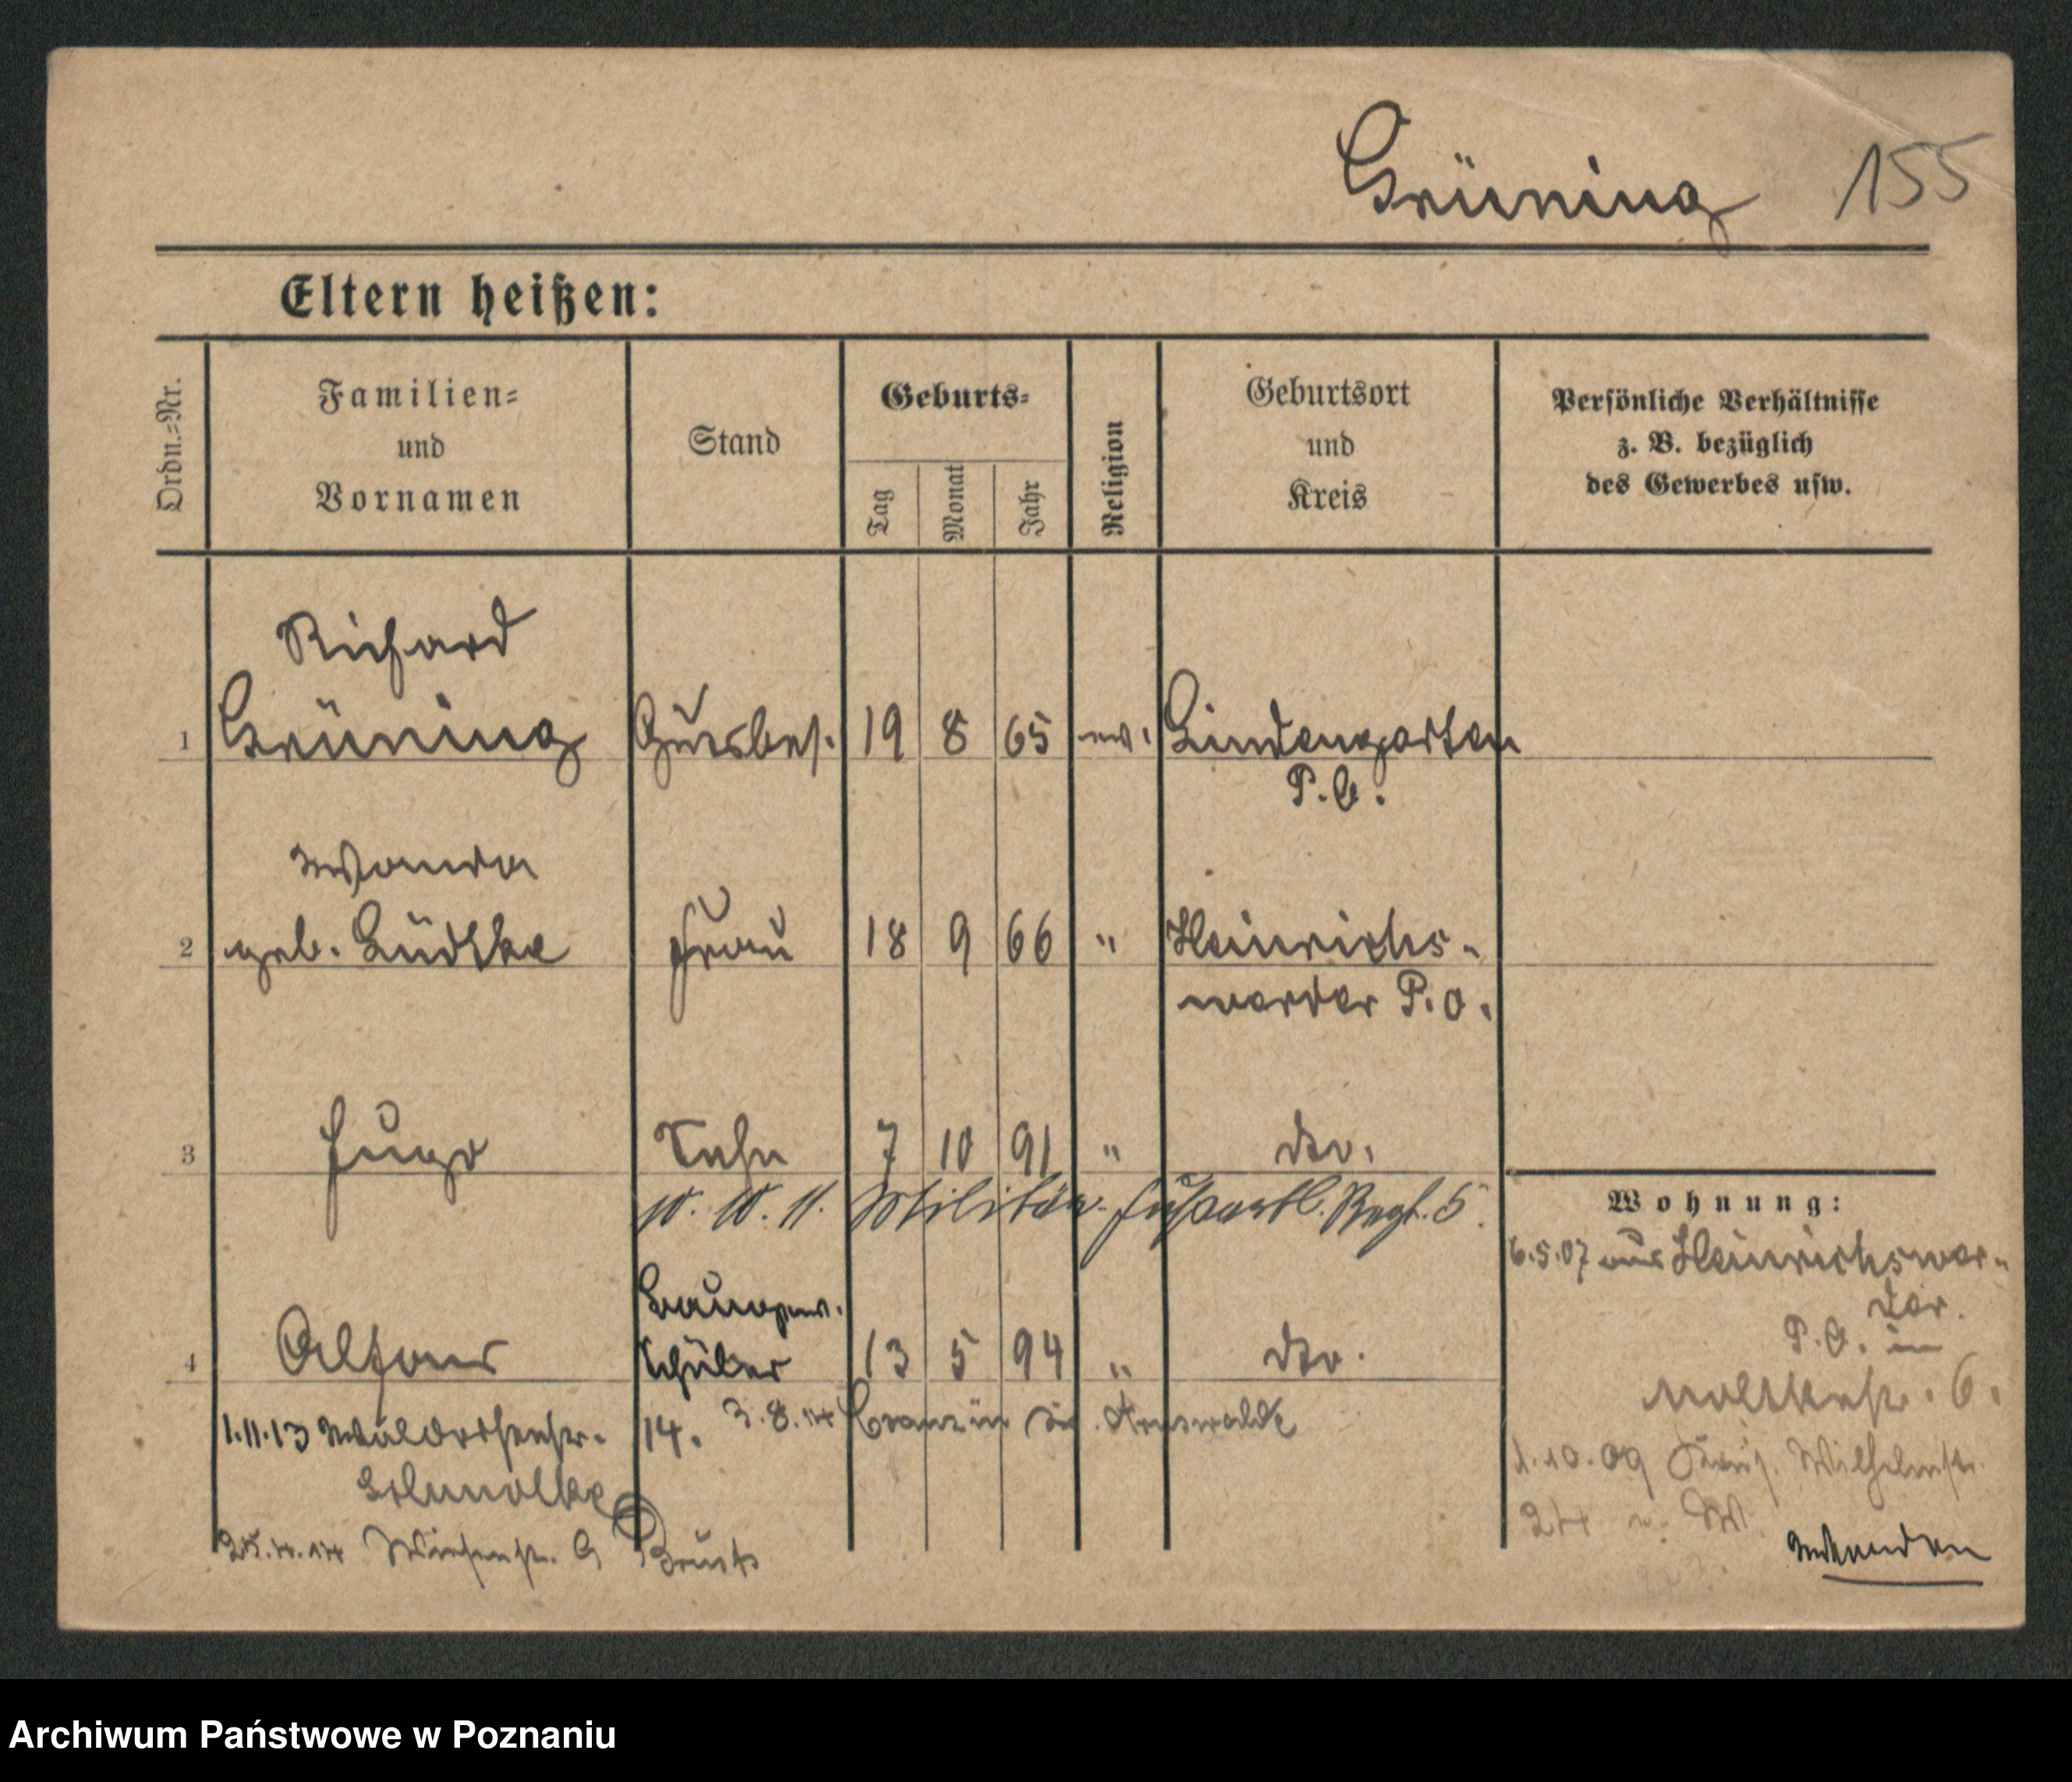 Grüning 155
Eltern heißen:
Ordn.-Nr.
Familien-
und
Vornamen
Stand
Geburts-
Tag
Monat
Jahr
Religion
Geburtsort
und
Kreis
Persönliche Verhältnisse
z. B. bezüglich
des Gewerbes usw.
Richard
1 Grüning Gutsbes. 19 8 65 ev. Lindengarten
P. O.
Wanda
2 geb. Lüdtke Frau 18 9 66 " Heinrichs-
werder P. O.
3 Hugo Sohn 7 10 91 " dto.
10. 10. 11. Militär. Fußartl. Regt. 5.
Wohnung:
6.5.07 aus Heinrichswer-
der
P. O. in
Moltkestr. 6.
Baugew.
4 Alfons Schüler 13 5 94 " dto.
1.11.13 14. 3.8.14 Arnswalde
Schmolke
25.4.14 Wiesenstr. 9
1.10.09 Wilhelmstr.
24
Wenden
Archiwum Państwowe w Poznaniu